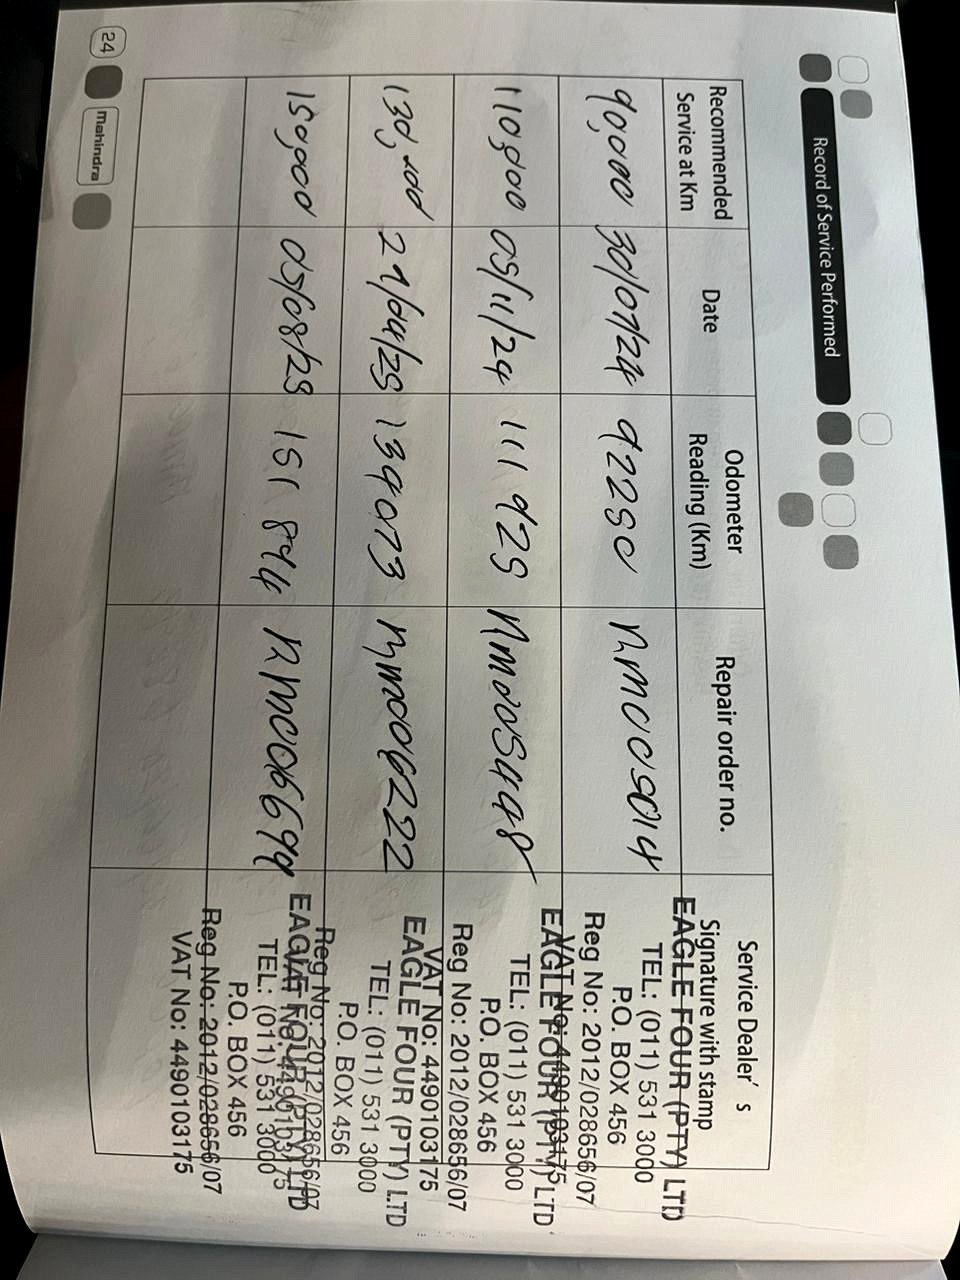 Record of Service Performed
Recommended Service at Km
Date
Odometer Reading (Km)
Repair order no.
Service Dealer's Signature with stamp
90,000 30/07/24 92250
EAGLE FOUR (PTY) LTD
TEL: (011) 531 3000
P.O. BOX 456
Reg No: 2012/028656/07
VAT No: 4490103175
110,000 05/11/24 111 925
EAGLE FOUR (PTY) LTD
TEL: (011) 531 3000
P.O. BOX 456
Reg No: 2012/028656/07
VAT No: 4490103175
130,000 134073
EAGLE FOUR (PTY) LTD
TEL: (011) 531 3000
P.O. BOX 456
Reg No: 2012/028656/07
VAT No: 4490103175
150,000 05/08/25 151 844
EAGLE FOUR (PTY) LTD
TEL: (011) 531 3000
P.O. BOX 456
Reg No: 2012/028656/07
VAT No: 4490103175
24
mahindra